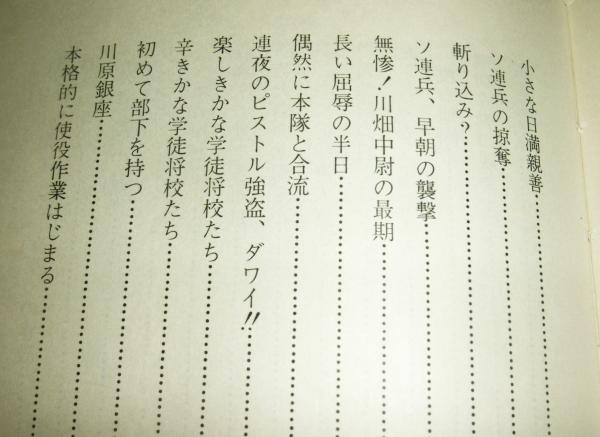 小さな日満親善……………………
ソ連兵の掠奪……………………
斬り込み？……………………
ソ連兵、早朝の襲撃……………………
無惨！川畑中尉の最期……………………
長い屈辱の半日……………………
偶然に本隊と合流……………………
連夜のピストル強盗、ダワイ!!……………………
楽しきかな学徒将校たち……………………
辛きかな学徒将校たち……………………
初めて部下を持つ……………………
川原銀座……………………
本格的に使役作業はじまる……………………